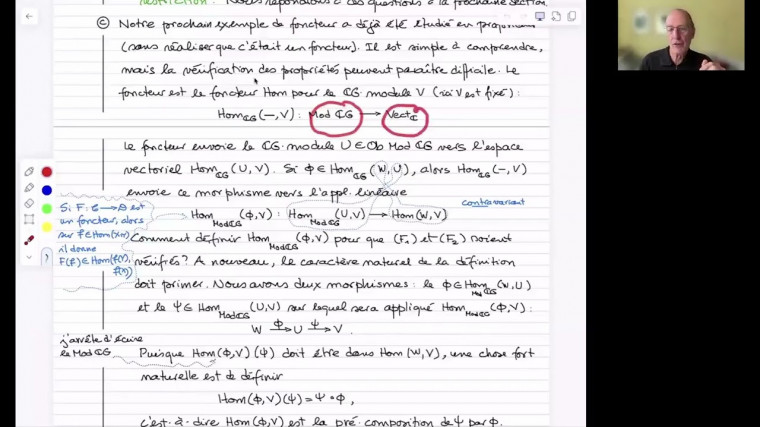 restriction. Nous répondons à ces questions à la prochaine section.
ⓒ Notre prochain exemple de foncteur a déjà été étudié en
(sans réaliser que c'était un foncteur). Il est simple à comprendre,
mais la vérification des propriétés peuvent paraître difficile. Le
foncteur est le foncteur Hom pour le ℂG-module V (ici V est fixé) :
Hom_ℂG(–, V) : Mod ℂG → Vect_ℂ
Le foncteur envoie le ℂG-module U ∈ Ob Mod ℂG vers l'espace
vectoriel Hom_ℂG(U, V). Si Φ ∈ Hom_ℂG(W, U), alors Hom_ℂG(–, V)
envoie ce morphisme vers l'appl. linéaire
contravariant
Hom_ModℂG(Φ, V) : Hom_ModℂG(U, V) → Hom(W, V)
Si F : C → D est
un foncteur, alors
sur f ∈ Hom(X,Y)
il donne
F(f) ∈ Hom(F(Y), F(X))
Comment définir Hom_ModℂG(Φ, V) pour que (F₁) et (F₂) soient
vérifiés? A nouveau, le caractère naturel de la définition
doit primer. Nous avons deux morphismes : le Φ ∈ Hom_ModℂG(W, U)
et le Ψ ∈ Hom_ModℂG(U, V) sur lequel sera appliqué Hom_ModℂG(Φ, V) :
W →Φ U →Ψ V .
j'arrête d'écrire
le Mod ℂG
Puisque Hom(Φ, V)(Ψ) doit être dans Hom(W, V), une chose fort
naturelle est de définir
Hom(Φ, V)(Ψ) = Ψ ∘ Φ ,
c'est-à-dire Hom(Φ, V) est la pré-composition de Ψ par Φ.